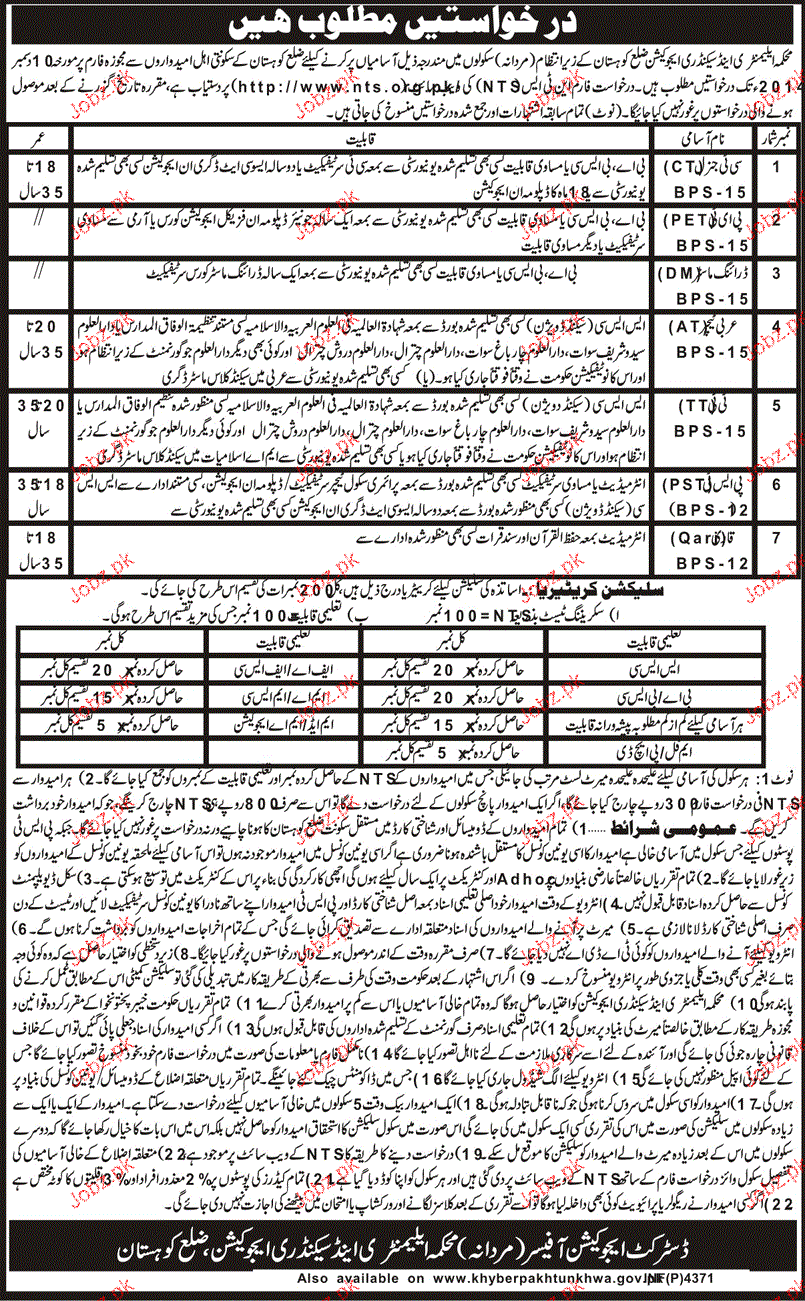 درخواستیں مطلوب ہیں
محکمہ ایلیمنٹری اینڈ سیکنڈری ایجوکیشن ضلع کوہستان کے زیر انتظام (مردانہ) سکولوں میں مندرجہ ذیل آسامیاں پر کرنے کیلئے ضلع کوہستان کے سکونتی اہل امیدواروں سے مجوزہ فارم پر مورخہ 10 دسمبر
2014 تک درخواستیں مطلوب ہیں۔ درخواست فارم این ٹی ایس (NTS) کی ویب سائٹ (http://www.nts.org.pk) پر دستیاب ہے، مقررہ تاریخ گزرنے کے بعد موصول
ہونے والی درخواستوں پر غور نہیں کیا جائیگا۔ (نوٹ) تمام سابقہ اشتہارات اور جمع شدہ درخواستیں منسوخ کی جاتی ہیں۔
نمبر شمار نام آسامی قابلیت عمر
1 سی ٹی جنرل (CT) BPS-15 بی اے، بی ایس سی یا مساوی قابلیت کسی بھی تسلیم شدہ یونیورسٹی سے بمعہ سی ٹی سرٹیفکیٹ یا دو سالہ ایسوسی ایٹ ڈگری ان ایجوکیشن کسی بھی تسلیم شدہ
یونیورسٹی سے یا 18 ماہ کا ڈپلومہ ان ایجوکیشن 18 تا 35 سال
2 پی ای ٹی (PET) BPS-15 بی اے، بی ایس سی یا مساوی قابلیت کسی بھی تسلیم شدہ یونیورسٹی سے بمعہ ایک سالہ جونیئر ڈپلومہ ان فزیکل ایجوکیشن کورس یا آرمی سے مساوی
سرٹیفکیٹ یا دیگر مساوی قابلیت //
3 ڈرائنگ ماسٹر (DM) BPS-15 بی اے، بی ایس سی یا مساوی قابلیت کسی بھی تسلیم شدہ یونیورسٹی سے بمعہ ایک سالہ ڈرائنگ ماسٹر کورس سرٹیفکیٹ //
4 عربی ٹیچر (AT) BPS-15 ایس ایس سی (سیکنڈ ڈویژن) کسی بھی تسلیم شدہ بورڈ سے بمعہ شہادۃ العالمیہ فی العلوم العربیہ والاسلامیہ کسی مستند تنظیمۃ الوفاق المدارس یا دارالعلوم
سیدو شریف سوات، دارالعلوم چار باغ سوات، دارالعلوم چترال، دارالعلوم دروش چترال اور کوئی بھی دیگر دارالعلوم جو گورنمنٹ کے زیر انتظام ہو
اور اس کا نوٹیفکیشن حکومت نے وقتاً فوقتاً جاری کیا ہو۔ (یا) کسی بھی تسلیم شدہ یونیورسٹی سے عربی میں سیکنڈ کلاس ماسٹر ڈگری 20 تا 35 سال
5 ٹی ٹی (TT) BPS-15 ایس ایس سی (سیکنڈ ڈویژن) کسی بھی تسلیم شدہ بورڈ سے بمعہ شہادۃ العالمیہ فی العلوم العربیہ والاسلامیہ کسی منظور شدہ تنظیم الوفاق المدارس یا
دارالعلوم سیدو شریف سوات، دارالعلوم چار باغ سوات، دارالعلوم چترال، دارالعلوم دروش چترال اور کوئی دیگر دارالعلوم جو گورنمنٹ کے زیر
انتظام ہو اور اس کا نوٹیفکیشن حکومت نے وقتاً فوقتاً جاری کیا ہو یا کسی بھی تسلیم شدہ یونیورسٹی سے ایم اے اسلامیات میں سیکنڈ کلاس ماسٹر ڈگری 20 تا 35 سال
6 پی ایس ٹی (PST) (BPS-12) انٹرمیڈیٹ یا مساوی سرٹیفکیٹ کسی بھی تسلیم شدہ بورڈ سے بمعہ پرائمری سکول ٹیچر سرٹیفکیٹ/ڈپلومہ ان ایجوکیشن، کسی مستند ادارے سے ایس ایس
سی (سیکنڈ ڈویژن) کسی بھی منظور شدہ بورڈ سے بمعہ دو سالہ ایسوسی ایٹ ڈگری ان ایجوکیشن کسی بھی تسلیم شدہ یونیورسٹی سے 18 تا 35 سال
7 قاری (Qari) BPS-12 انٹرمیڈیٹ بمعہ حفظ القرآن اور سند قرات کسی بھی منظور شدہ ادارے سے 18 تا 35 سال
سلیکشن کریٹیریا:۔ اساتذہ کی سلیکشن کیلئے کریٹیریا درج ذیل ہیں، کل 200 نمبرات کی تقسیم اس طرح کی جائے گی۔
ا) سکریننگ ٹیسٹ بذریعہ NTS=100 نمبر ب) تعلیمی قابلیت=100 نمبر جس کی مزید تقسیم اس طرح ہوگی۔
تعلیمی قابلیت کل نمبر تعلیمی قابلیت کل نمبر
ایس ایس سی حاصل کردہ نمبر x 20 تقسیم کل نمبر ایف اے/ایف ایس سی حاصل کردہ نمبر x 20 تقسیم کل نمبر
بی اے/بی ایس سی حاصل کردہ نمبر x 20 تقسیم کل نمبر ایم اے/ایم ایس سی حاصل کردہ نمبر x 15 تقسیم کل نمبر
ہر آسامی کیلئے کم از کم مطلوبہ پیشہ ورانہ قابلیت حاصل کردہ نمبر x 15 تقسیم کل نمبر ایم ایڈ/ایم اے ایجوکیشن حاصل کردہ نمبر x 5 تقسیم کل نمبر
ایم فل/پی ایچ ڈی حاصل کردہ نمبر x 5 تقسیم کل نمبر
نوٹ 1: ہر سکول کی آسامی کیلئے علیحدہ علیحدہ میرٹ لسٹ مرتب کی جائیگی جس میں امیدواروں کے NTS کے حاصل کردہ نمبر اور تعلیمی قابلیت کے نمبروں کو جمع کیا جائے گا۔ 2) ہر امیدوار سے
NTS فی درخواست فارم 300 روپے چارج کیا جائے گا، اگر ایک امیدوار پانچ سکولوں کے لئے درخواست دے گا تو اس سے صرف 800 روپے NTS چارج کریگی، جو کہ امیدوار خود برداشت
کریں گے۔ عمومی شرائط ...... 1) تمام امیدواروں کے ڈومیسائل اور شناختی کارڈ میں مستقل سکونت ضلع کوہستان کا ہونا چاہیے ورنہ درخواست پر غور نہیں کیا جائے گا جبکہ پی ایس ٹی
پوسٹوں کیلئے جس سکول میں آسامی خالی ہے امیدوار کا اسی یونین کونسل کا مستقل باشندہ ہونا ضروری ہے اگر اسی یونین کونسل میں امیدوار موجود نہ ہوں تو اس آسامی کیلئے ملحقہ یونین کونسل کے امیدواروں کو
زیر غور لایا جائے گا۔ 2) تمام تقرریاں خالصتاً عارضی بنیادوں پر Adhoc اور کنٹریکٹ پر ایک سال کیلئے ہوں گی اچھی کارکردگی کی بناء پر اس کے کنٹریکٹ میں توسیع ہو سکتی ہے۔ 3) سکل ڈویلپمنٹ
کونسل سے حاصل کردہ اسناد قابل قبول نہیں۔ 4) انٹرویو کے وقت امیدوار خود اصلی تعلیمی اسناد بمعہ اصل شناختی کارڈ اور پی ایس ٹی امیدوار اپنے ساتھ نادرا کا یونین کونسل سرٹیفکیٹ لائیں اور ٹیسٹ کے دن
صرف اصلی شناختی کارڈ لانا لازمی ہے۔ 5) میرٹ پر آنے والے امیدواروں کی اسناد متعلقہ ادارے سے تصدیق کرائی جائے گی جس کے تمام اخراجات امیدواروں کو برداشت کرنے ہوں گے۔ 6)
انٹرویو کیلئے آنے والے امیدواروں کو کوئی ٹی اے ڈی اے نہیں دیا جائے گا۔ 7) صرف مقررہ وقت کے اندر موصول ہونے والی درخواستوں پر غور کیا جائے گا۔ 8) زیر دستخطی کو اختیار حاصل ہے کہ وہ کوئی وجہ
بتائے بغیر کسی بھی وقت کلی یا جزوی طور پر انٹرویو منسوخ کر دے۔ 9) اگر اس اشتہار کے بعد حکومت وقت کی طرف سے بھرتی کے طریقہ کار میں تبدیلی کی گئی تو سلیکشن کمیٹی اس کے مطابق عمل کرنے کی
پابند ہوگی 10) محکمہ ایلیمنٹری اینڈ سیکنڈری ایجوکیشن کو اختیار حاصل ہوگا کہ وہ تمام خالی آسامیوں یا اس سے کم پر امیدوار بھرتی کرے 11) تمام تقرریاں حکومت خیبر پختونخوا کے مقرر کردہ قوانین و
مجوزہ طریقہ کار کے مطابق خالصتاً میرٹ کی بنیاد پر ہوں گی 12) تمام تعلیمی اسناد صرف گورنمنٹ کے تسلیم شدہ اداروں کی قابل قبول ہوں گی 13) اگر کسی امیدوار کی اسناد جعلی پائی گئیں تو اس کے خلاف
قانونی چارہ جوئی کی جائے گی اور آئندہ کے لئے اسے سرکاری ملازمت کے لئے نااہل تصور کیا جائے گا 14) نامکمل فارم یا معلومات کی صورت میں درخواست فارم خود بخود منسوخ تصور کیا جائے گا جس
کے لئے کوئی اپیل منظور نہیں کی جائے گی 15) انٹرویو کیلئے الگ شیڈول جاری کیا جائے گا 16) جس میں ڈاکومنٹس چیک کئے جائینگے۔ تمام تقرریاں متعلقہ اضلاع کے ڈومیسائل/یونین کونسل کی بنیاد پر
ہوں گی۔ 17) امیدوار کو اسی سکول میں سروس کرنا ہوگی جو کہ ناقابل تبادلہ ہوگی۔ 18) ایک امیدوار بیک وقت 5 سکولوں میں خالی آسامیوں کیلئے درخواست دے سکتا ہے۔ امیدوار کے ایک یا ایک سے
زیادہ سکولوں میں سلیکشن کی صورت میں اس کی تقرری کسی ایک سکول میں کی جائے گی اس صورت میں سکول سلیکشن کا استحقاق امیدوار کو حاصل نہیں بلکہ اس میں اس بات کا خیال رکھا جائے گا کہ دوسرے
سکولوں میں اس کے بعد زیادہ میرٹ والے امیدوار کو سلیکشن کا موقع مل سکے 19) درخواست دینے کا طریقہ کار NTS کے ویب سائٹ پر موجود ہے 22) متعلقہ اضلاع کے خالی آسامیوں کی
تفصیل سکول وائز درخواست فارم کے ساتھ NTS کے ویب سائٹ پر دی گئی ہیں اور ہر سکول کو اپنا کوڈ دیا گیا ہے 21) تمام کیڈرز کی پوسٹوں پر 2% معذور افراد اور 3% اقلیتوں کا کوٹہ مختص ہے
22) اگر کسی امیدوار نے ریگولر یا پرائیویٹ کوئی بھی داخلہ لیا ہوگا تو اسے تقرری کے بعد کلاسز لگانے اور ورکشاپ یا امتحان میں بیٹھنے کی اجازت نہیں دی جائے گی۔
ڈسٹرکٹ ایجوکیشن آفیسر (مردانہ) محکمہ ایلیمنٹری اینڈ سیکنڈری ایجوکیشن، ضلع کوہستان
Also available on www.khyberpakhtunkhwa.gov.pk INF(P)4371
Jobz.pk